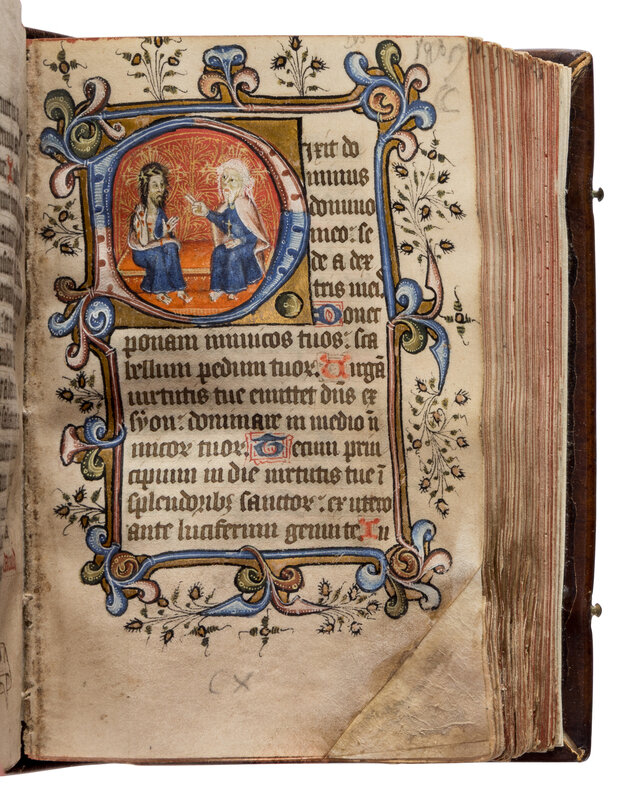 Dixit do
minus
domino
meo: se
de a dex
tris meis
Donec
ponam inimicos tuos: sca
bellum pedum tuor. Uirgā
uirtutis tue emittet dn̄s ex
syon: dominare in medio īi
micor tuor. Tecum prin
cipium in die uirtutis tue ī
splendoribꝫ sanctor: ex utero
ante luciferum genui te. Iu
CX